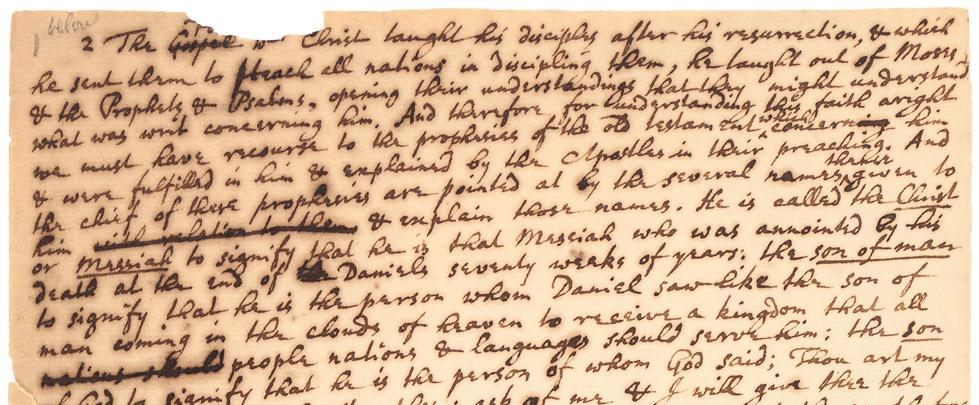 below
2 The Gospel Christ taught his disciples after his resurrection, & which
he sent them to preach all nations in discipling them, he taught out of Moses
& the Prophets & Psalms, opening their understandings that they might understand
what was writ concerning him. And therefore for understanding this faith aright
we must have recourse to the prophesies of the old testament which concerning him
& were fulfilled in him & explained by the Apostles in their preaching. And
the chief of these prophesies are pointed at by the several names given to
him with relation to them & explain those names. He is called the Christ
or Messiah to signify that he is that Messiah who was annointed by his
death at the end of the Daniels seventy weeks of years: the son of man
to signify that he is the person whom Daniel saw like the son of
man coming in the clouds of heaven to receive a kingdom that all
nations should people nations & languages should serve him: the son
of God to signify that he is the person of whom God said; Thou art my
ask of me & I will give thee the